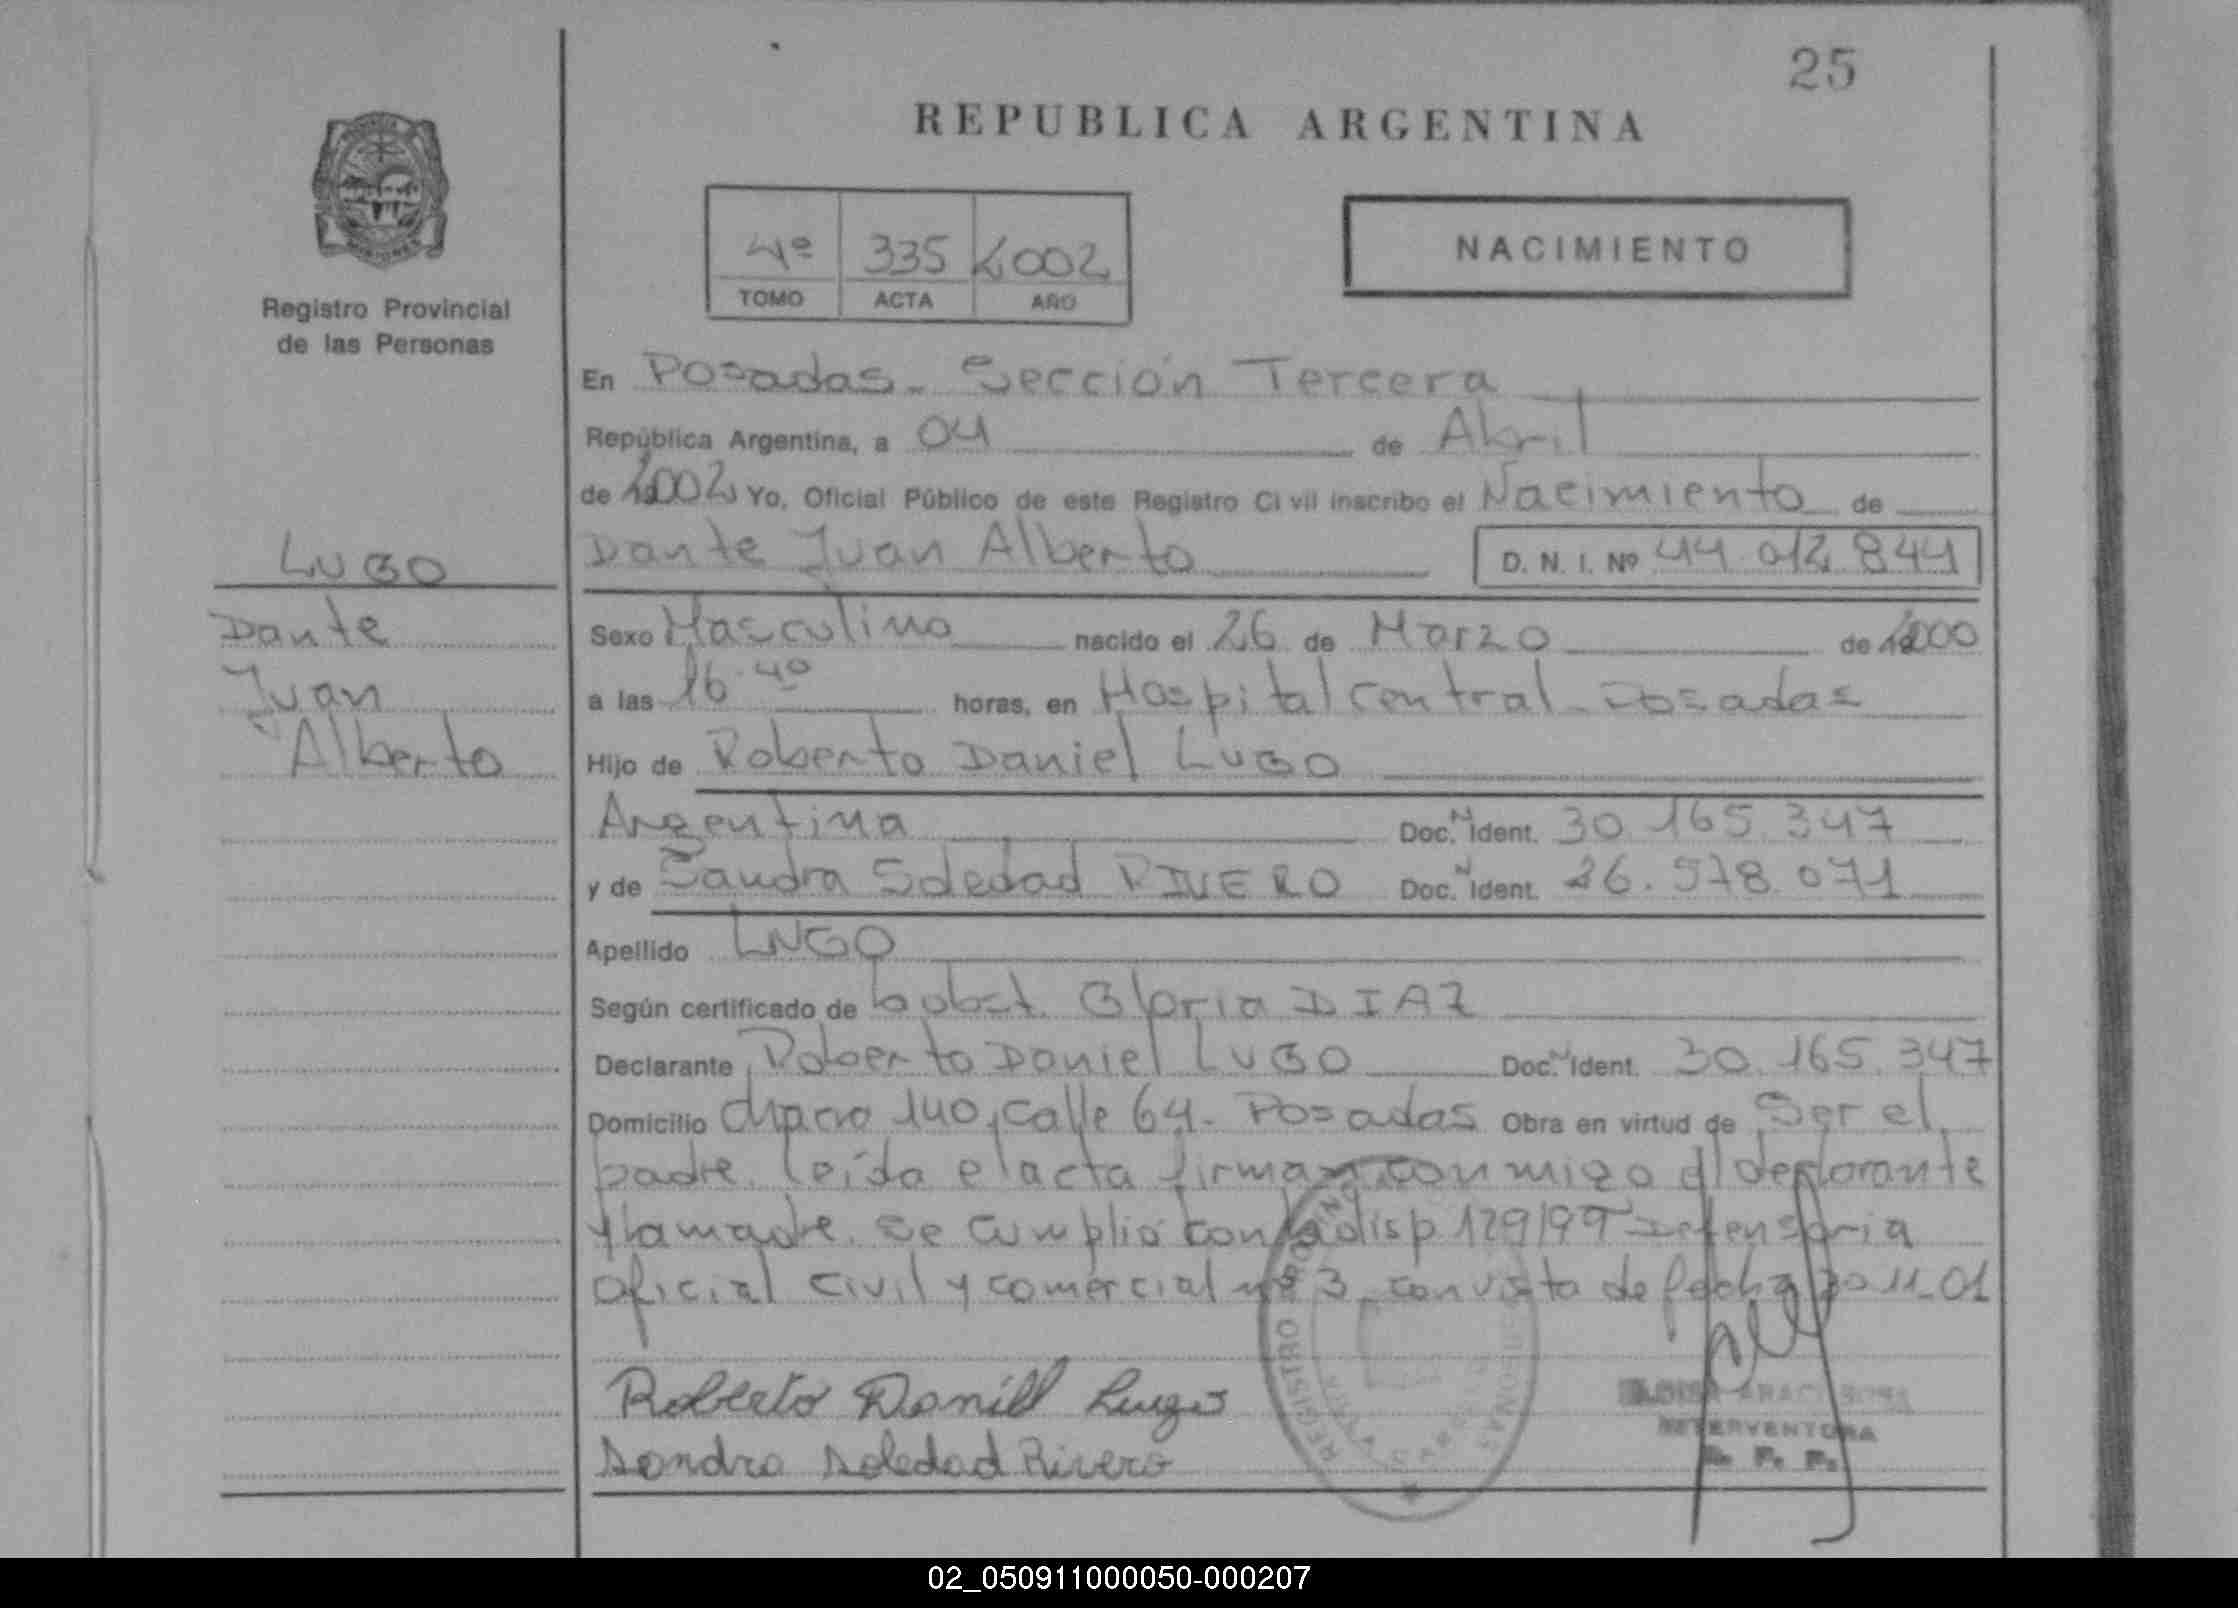 25
REPUBLICA ARGENTINA
4º 335 2002
TOMO ACTA AÑO
NACIMIENTO
Registro Provincial
de las Personas
En Posadas - Sección Tercera
República Argentina, a 04 de Abril
de 2002 Yo, Oficial Público de este Registro Civil inscribo el Nacimiento de
LUGO
Dante Juan Alberto D. N. I. Nº 44.012.844
Dante
Sexo Masculino nacido el 26 de Marzo de 2000
Juan
a las 16.40 horas, en Hospital central - Posadas
Alberto
Hijo de Roberto Daniel LUGO
Argentina Doc. N Ident. 30.165.347
y de Sandra Soledad RIVERO Doc. N Ident. 26.578.071
Apellido LUGO
Según certificado de obst. Gloria DIAZ
Declarante Roberto Daniel LUGO Doc. N Ident. 30.165.347
Domicilio chacra 140, calle 64 - Posadas Obra en virtud de Ser el
padre. leída el acta firman conmigo el declarante
y la madre. se cumplió con la disp 129/99 Defensoria
oficial civil y comercial nº 3, con vista de fecha 30-11-01
Roberto Daniel Lugo
Sandra Soledad Rivero
REGISTRO
INTERVENTORA
R. P. P.
02_050911000050-000207